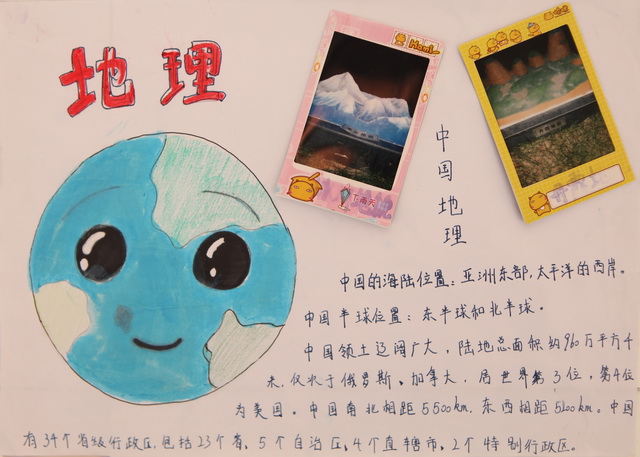 地理
Mami
下雨天
中国地理
中国的海陆位置：亚洲东部,太平洋的西岸。
中国半球位置：东半球和北半球。
中国领土辽阔广大，陆地总面积约960万平方千
米,仅次于俄罗斯、加拿大，居世界第3位，第4位
为美国。中国南北相距5500km,东西相距5200km.中国
有34个省级行政区,包括23个省、5个自治区,4个直辖市,2个特别行政区。